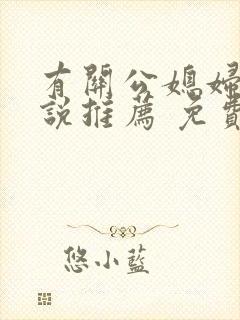 有關公媳婦
說推薦 免費
悠小藍